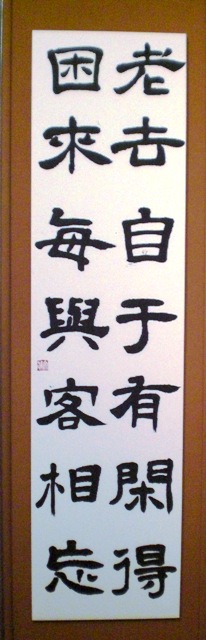 老去自于有閑得
困來每與客相忘